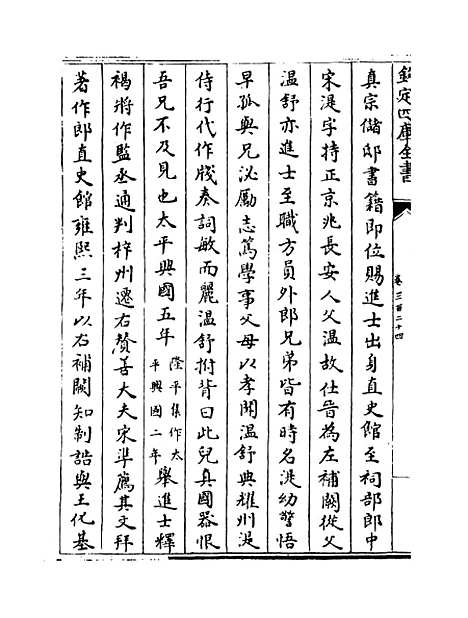 欽定四庫全書
卷三百二十四
真宗儲邸書籍即位賜進士出身直史館至祠部郎中
宋湜字持正京兆長安人父溫故仕晉為左補闕從父
溫舒亦進士至職方員外郎兄弟皆有時名湜幼警悟
早孤與兄泌勵志篤學事父母以孝聞溫舒典耀州湜
侍行代作牋奏詞敏而麗溫舒拊背曰此兒真國器恨
吾兄不及見也太平興國五年隆平集作太平興國二年舉進士釋
褐將作監丞通判梓州遷右贊善大夫宋準薦其文拜
著作郎直史館雍熙三年以右補闕知制誥與王化基